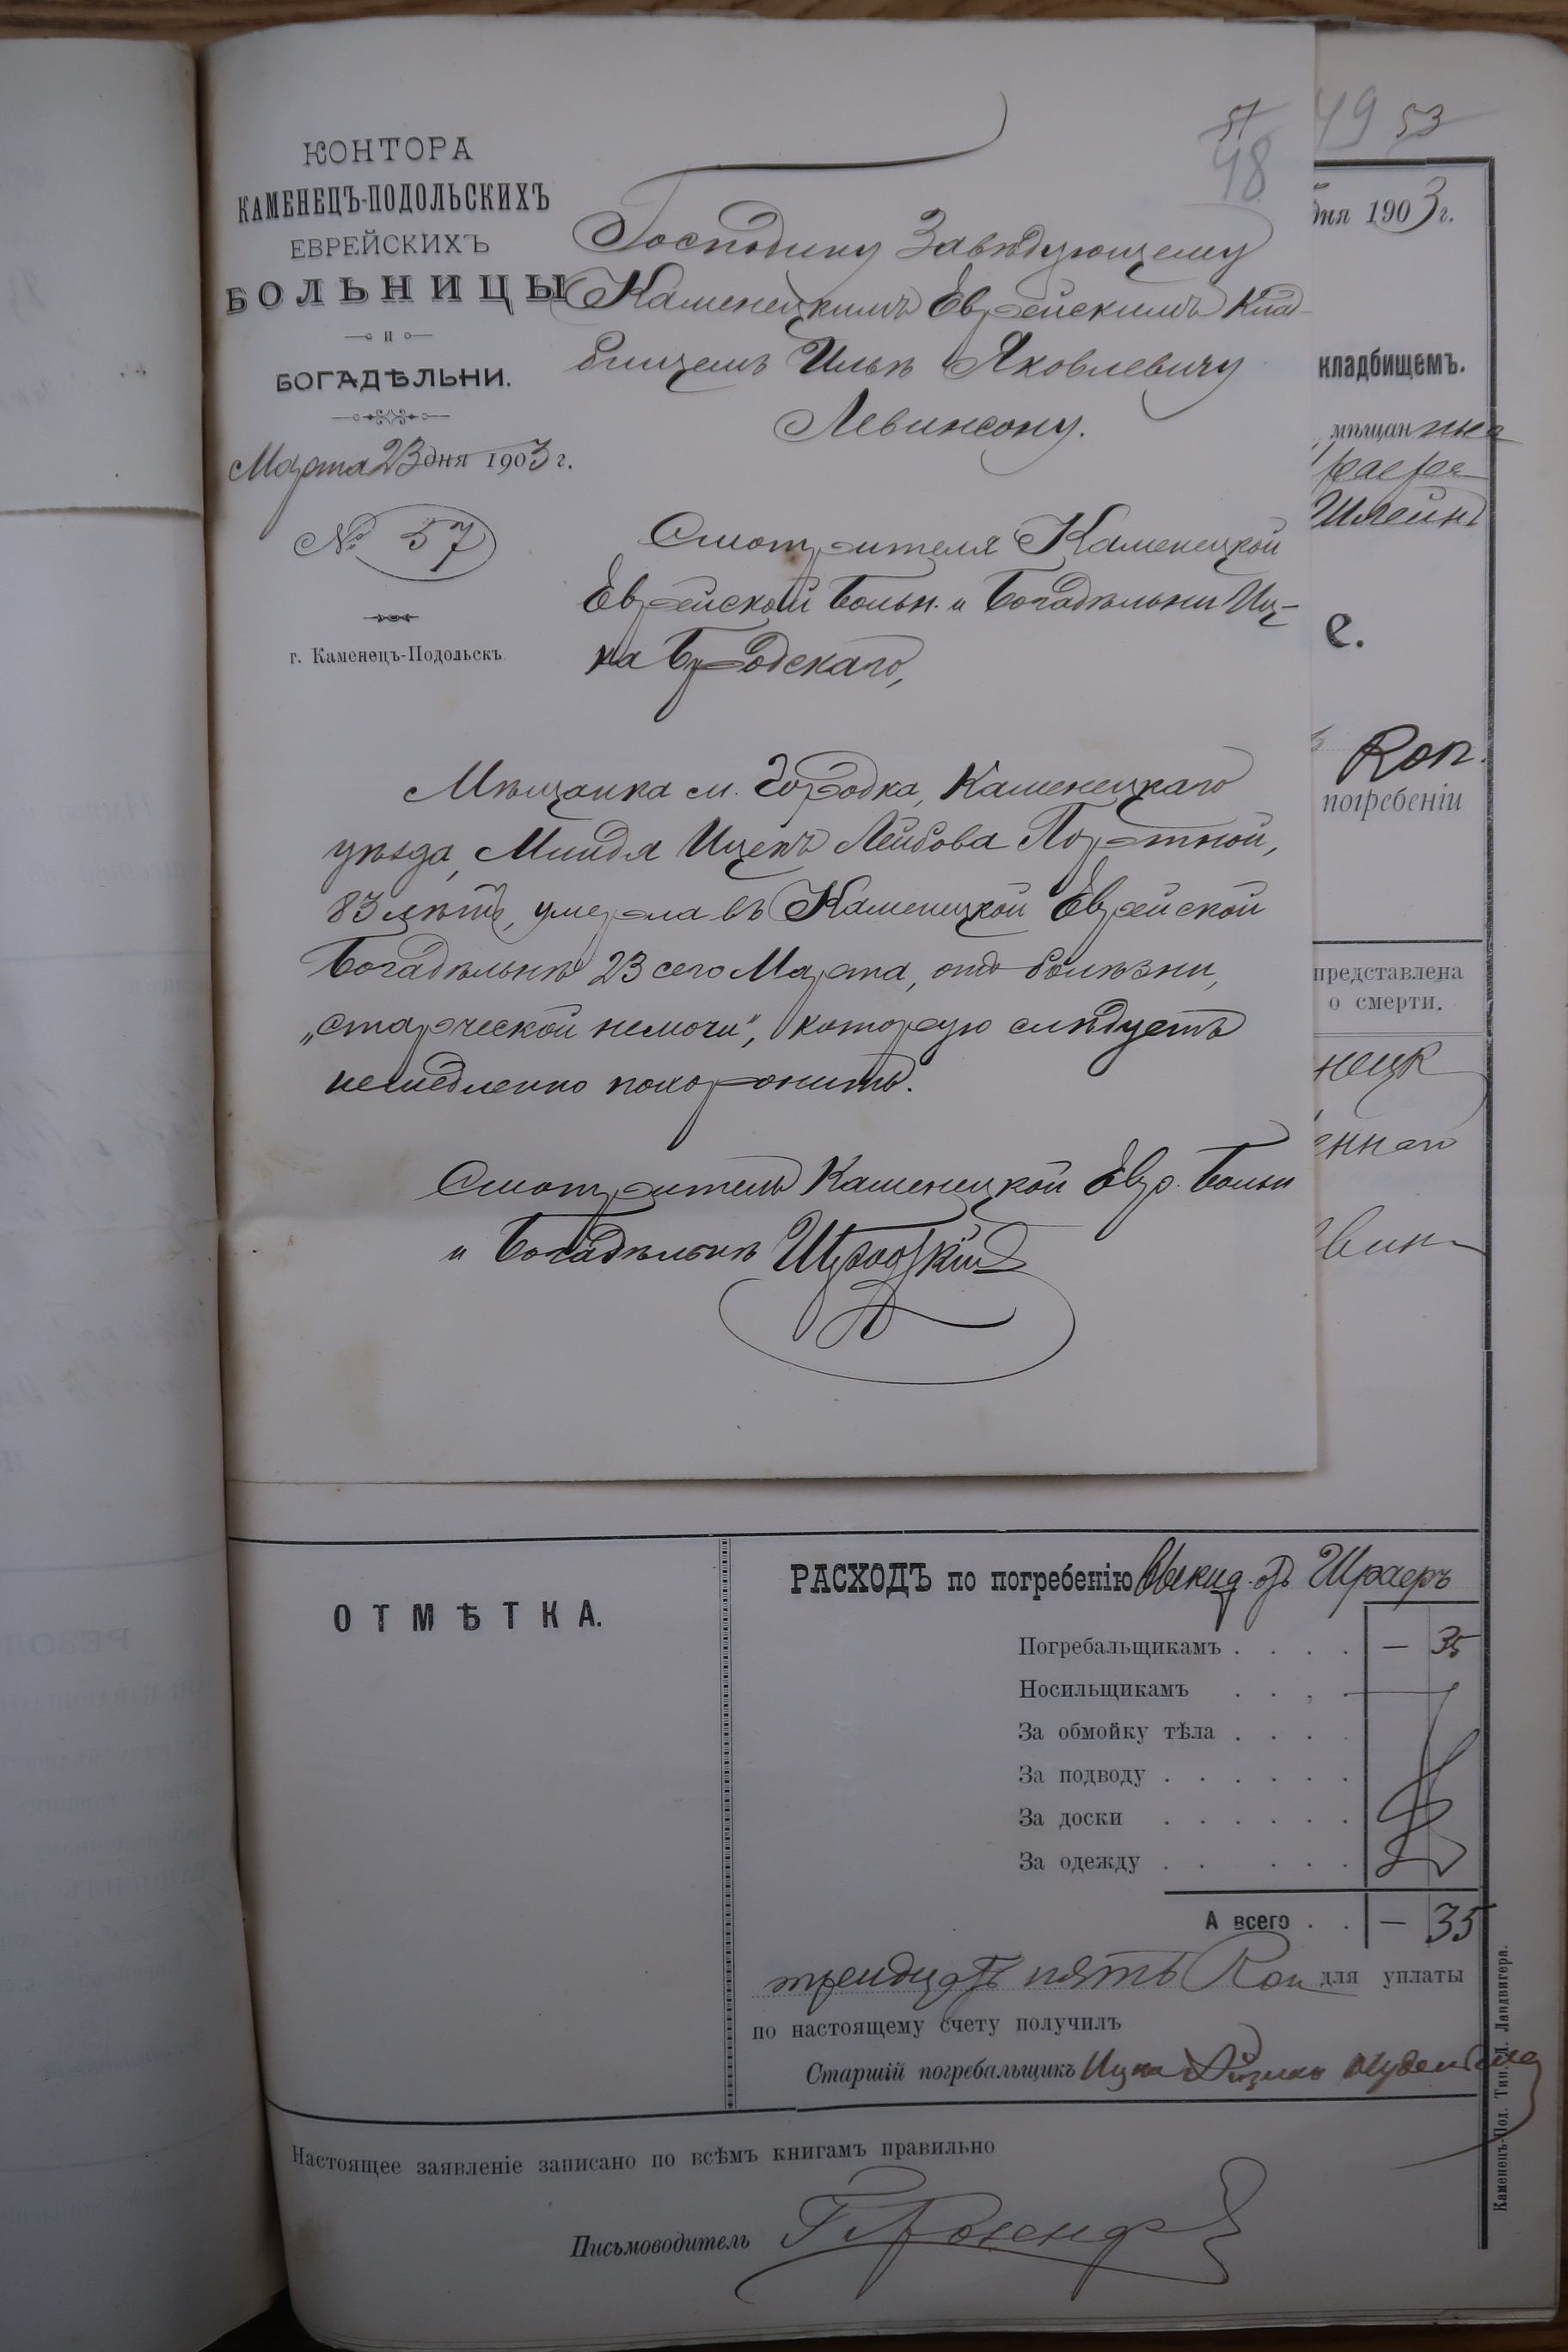 51
48
49 53
КОНТОРА
КАМЕНЕЦЪ-ПОДОЛЬСКИХЪ
ЕВРЕЙСКИХЪ
БОЛЬНИЦЫ
и
БОГАДѢЛЬНИ.
Марта 23 дня 1903 г.
№ 57
г. Каменецъ-Подольскъ.
Господину Завѣдующему
Каменецкимъ Еврейскимъ Клад-
бищемъ Ильѣ Яковлевичу
Левинсону.
Смотрителя Каменецкой
Еврейской Больн. и Богадѣльни Иц-
ка Бродскаго,
Мѣщанка м. Городка, Каменецкаго
уѣзда, Миндля Ицекъ Лейбова Портной,
83 лѣтъ, умерла въ Каменецкой Еврейской
Богадѣльнѣ 23 сего Марта, отъ болѣзни,
„старческой немочи", которую слѣдуетъ
немедленно похоронить.
Смотритель Каменецкой Евр. Больн
и Богадѣльнѣ ИБродскій
дня 1903 г.
кладбищемъ.
мѣщан
Шлейн
е.
Коп.
погребеніи
представлена
о смерти.
нецк
еннаго
ОТМѢТКА.
РАСХОДЪ по погребенію выкид. отъ Шраеръ
Погребальщикамъ . . . . — 35
Носильщикамъ . . . .
За обмойку тѣла . . . .
За подводу . . . . . .
За доски . . . . . .
За одежду . . . . .
А всего . . — 35
тридцать пять Коп для уплаты
по настоящему счету получилъ
Старшій погребальщикъ Ицко Айзикъ
Настоящее заявленіе записано по всѣмъ книгамъ правильно
Письмоводитель
Каменецъ-Под. Тип. Л. Ландвигера.